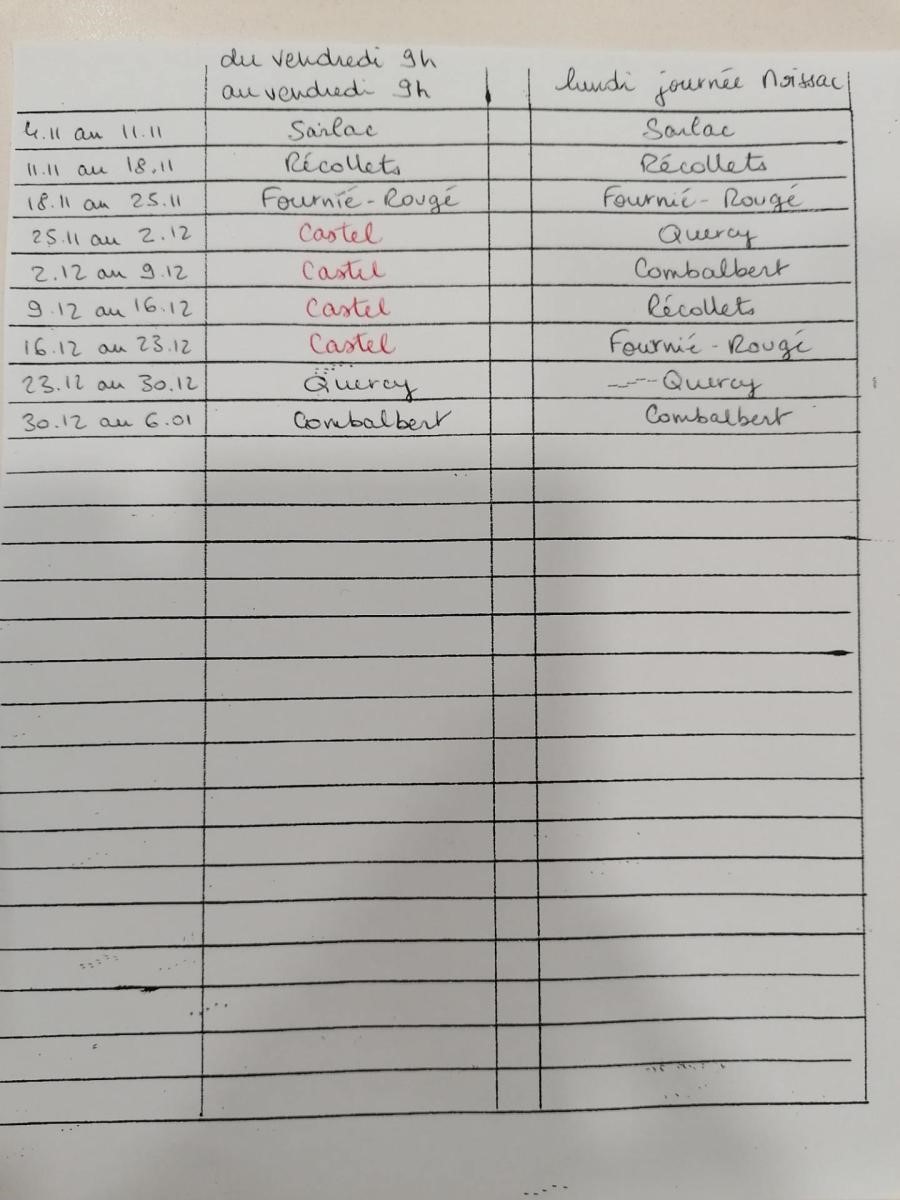 du vendredi 9h
au vendredi 9h
lundi journée Moissac
4.11 au 11.11 Sarlac Sarlac
11.11 au 18.11 Récollets Récollets
18.11 au 25.11 Fournié-Rougé Fournié-Rougé
25.11 au 2.12 Castel Quercy
2.12 au 9.12 Castel Combalbert
9.12 au 16.12 Castel Récollets
16.12 au 23.12 Castel Fournié-Rougé
23.12 au 30.12 Quercy Quercy
30.12 au 6.01 Combalbert Combalbert